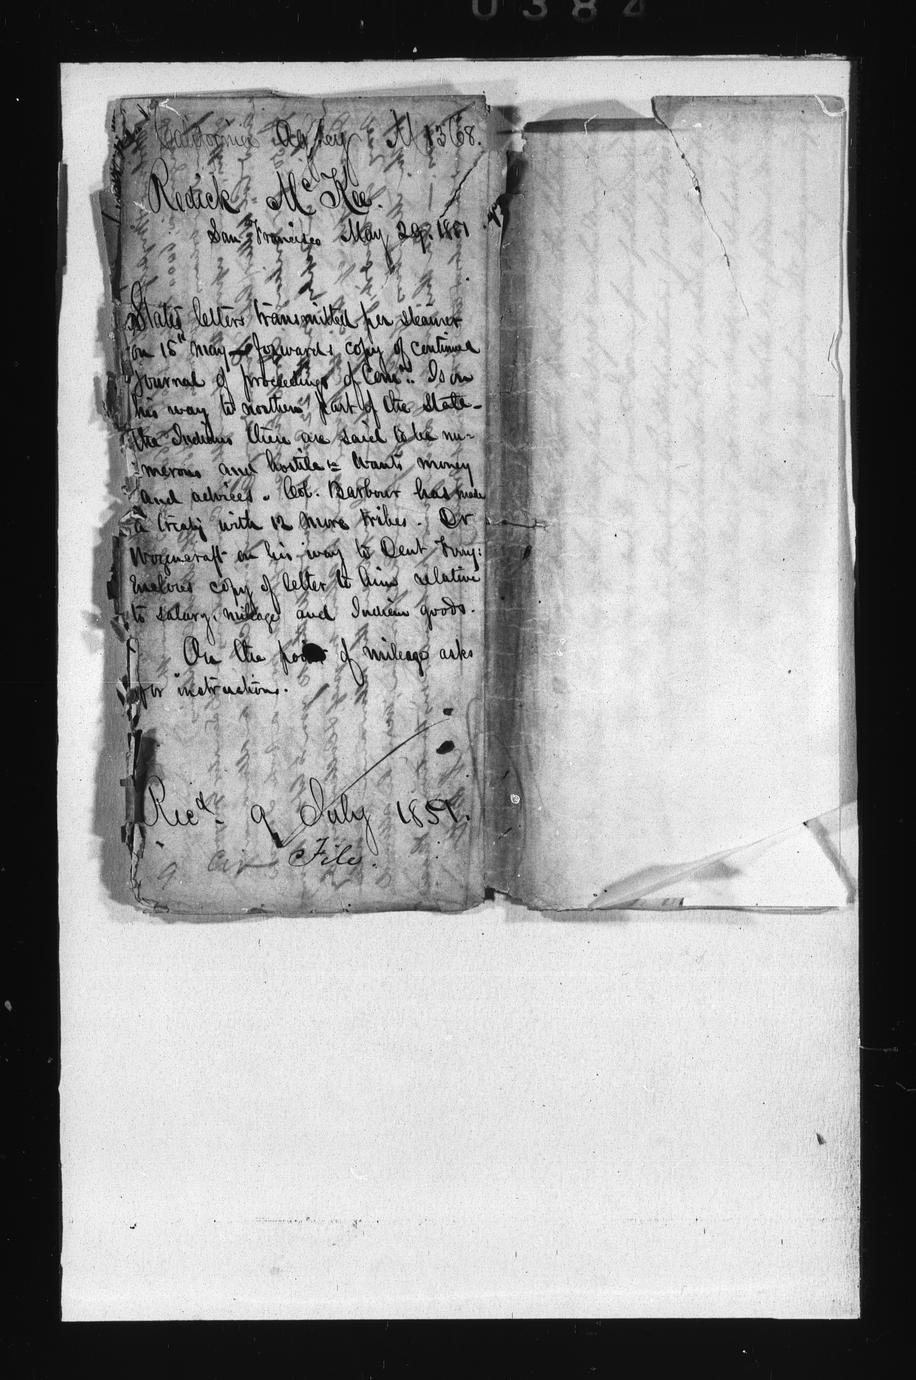 0384
California Agcy M 1368.
Redick McKee.
San Francisco May 29, 1851
States letters transmitted per steamer
on 15" May - forwards copy of continued
journal of proceedings of Comrs. Is on
his way to northern part of the State -
the Indians there are said to be nu-
merous and hostile - Wants money
and advices. Col. Barbour has made
a treaty with 12 more tribes. Dr
Wozencraft on his way to Dent Ferry:
Encloses copy of letter to him relative
to salary, mileage and Indian goods.
On the point of mileage asks
for instructions.
Recd. 9 July 1851.
File.